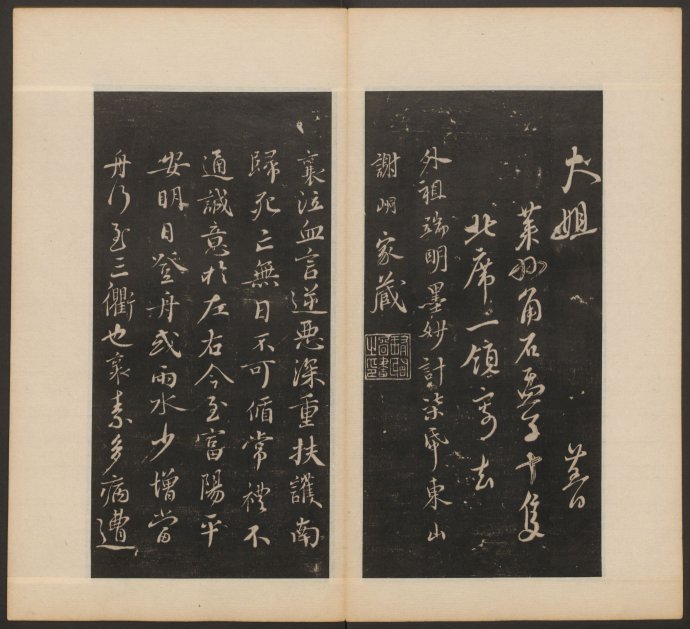 大姐
萊州角石子十隻
北席一領寄去
外祖端明墨妙計柒帋東山
謝明家藏
襄泣血言逆惡深重扶護南
歸死亡無日不可循常禮不
通誠意於左右今至富陽平
安明日登舟或雨水少增當
舟行至三衢也襄素多病遭